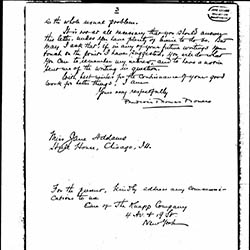 3
in the whole sexual problem.
It is not at all necessary that you should answer
this letter, unless you have plenty of time to do so. But
may I ask that if in any of your future writings you
touch on the points I have suggested, you will do what
you can to remember my address, and to have a notice
sent me of the writing in question.
With best wishes for the continuance of your good
work for better things, I am
Yours very respectfully
Miss Jane Addams
Hull House, Chicago, Ill.
For the present, kindly address any communica-
tions to me
Care of The Knapp Company
4 Av. & 19 St
New York